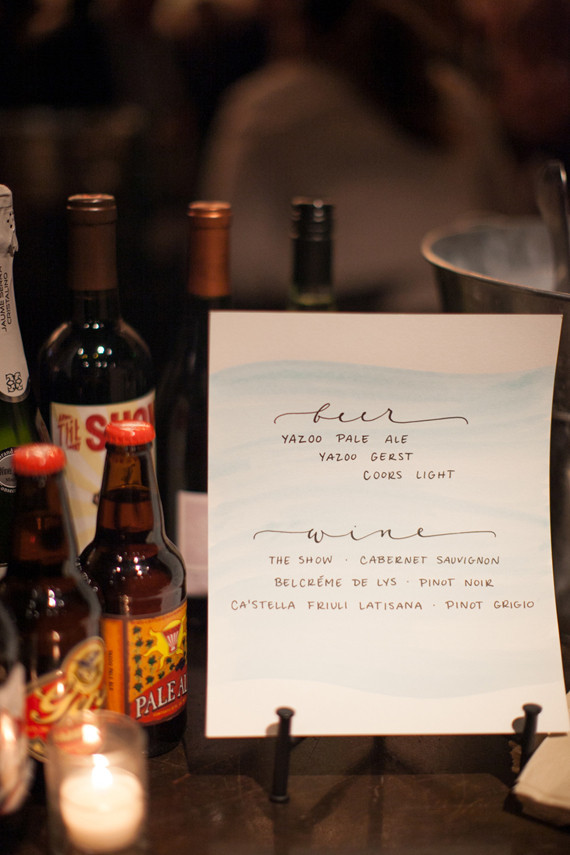 JAUME SERRA
CRISTALINO
THE SHOW
PALE
beer
YAZOO PALE ALE
YAZOO GERST
COORS LIGHT
wine
THE SHOW · CABERNET SAUVIGNON
BELCRÉME DE LYS · PINOT NOIR
CA'STELLA FRIULI LATISANA · PINOT GRIGIO